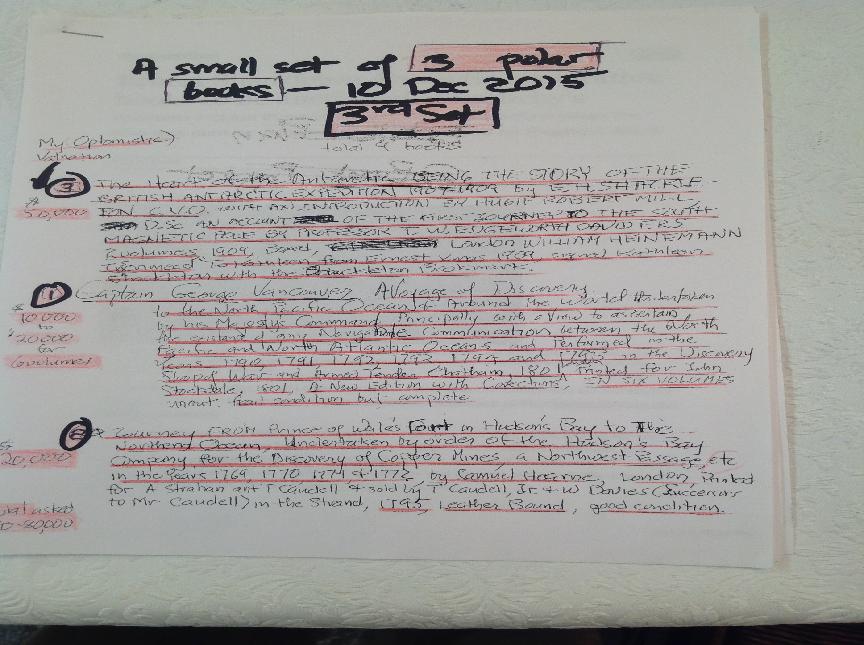 A small set of 3 polar
books — 10 Dec 2015
3rd Set
My Optomistic)
Valuation
total 9 books
3 The Heart of the Antarctic BEING THE STORY OF THE
$ BRITISH ANTARCTIC EXPEDITION 1907-1909 by E.H. SHACKLE-
50,000 TON C.V.O. WITH AN INTRODUCTION BY HUGH ROBERT MILL,
D.Sc AN ACCOUNT OF THE FIRST JOURNEY TO THE SOUTH
MAGNETIC POLE BY PROFESSOR T. W. EDGEWORTH DAVID F.R.S
2 volumes, 1909, Bound, London WILLIAM HEINEMANN
from Ernest Xmas 1909 signed Kathleen
Shackleton with the Shackleton Bookmark.
1 Captain George Vancouver A Voyage of Discovery
$ to the North Pacific Ocean & Around the World Undertaken
10,000 by his Majestys Command Principally with a View to ascertain
to the existence of any Navigable Communication between the North
$20,000 Pacific and North Atlantic Oceans and Performed in the
for Years 1790, 1791, 1792, 1793, 1794 and 1795 in the Discovery
6 volumes Sloop of War and Armed Tender Chatham, 1801, Printed for John
Stockdale, 1801, A New Edition with Corrections, IN SIX VOLUMES
fair condition but complete.
2 A Journey FROM Prince of Wale's Fort in Hudson's Bay to The
$ Northern Ocean, Undertaken by order of the Hudson's Bay
20,000 Company, for the Discovery of Copper Mines a Northwest Passage, etc
in the Years 1769, 1770, 1771 & 1772, by Samuel Hearne, London, Printed
for A Strahan and T Caudell & sold by T Caudell, Jr. & W Davies (Successors
total asked to Mr Caudell) in the Strand, 1795, Leather Bound, good condition.
0-80,000